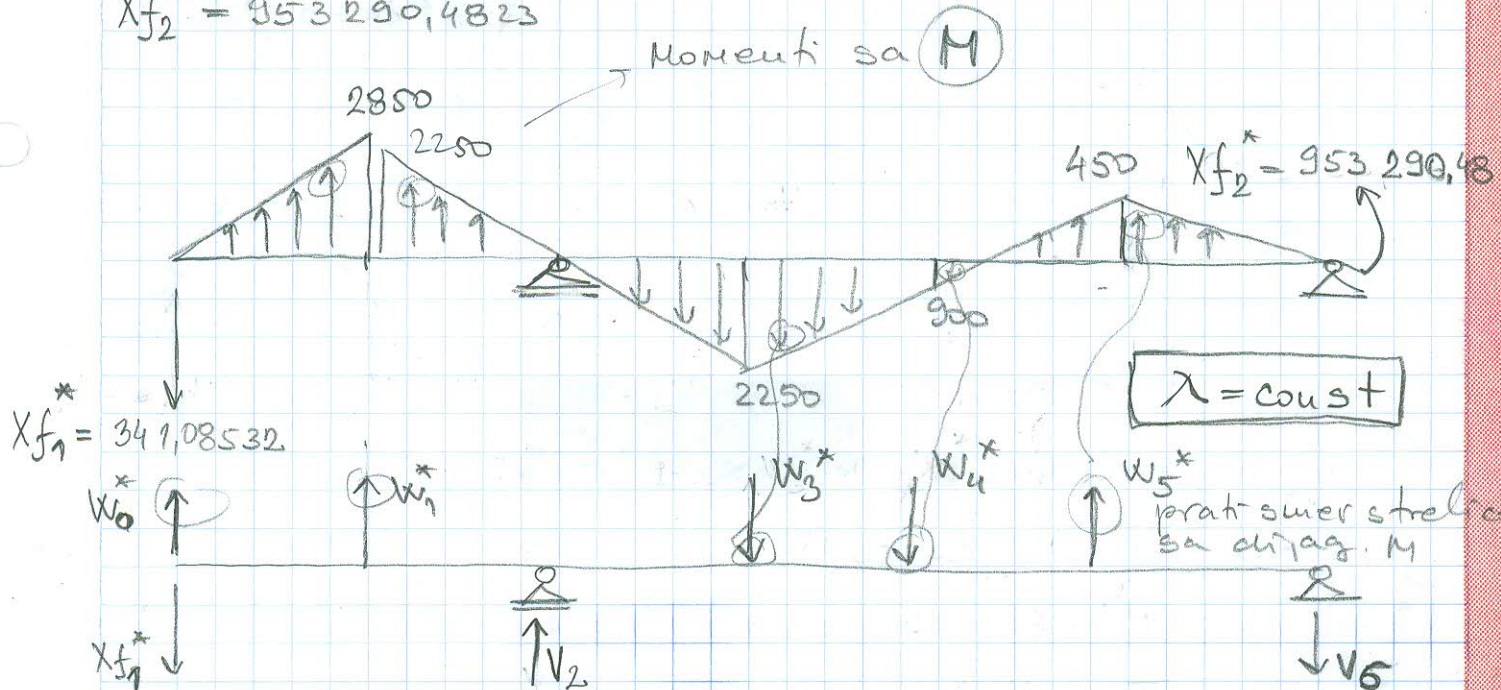 Xf2 = 953 290,4823
Momenti sa M
2850
2250
450
Xf2* = 953 290,48
900
2250
λ = const
Xf1* = 341,08532
W0*
W1*
W3*
W4*
W5*
prati smer strelic
sa dijag. M
Xf1*
V2
V6